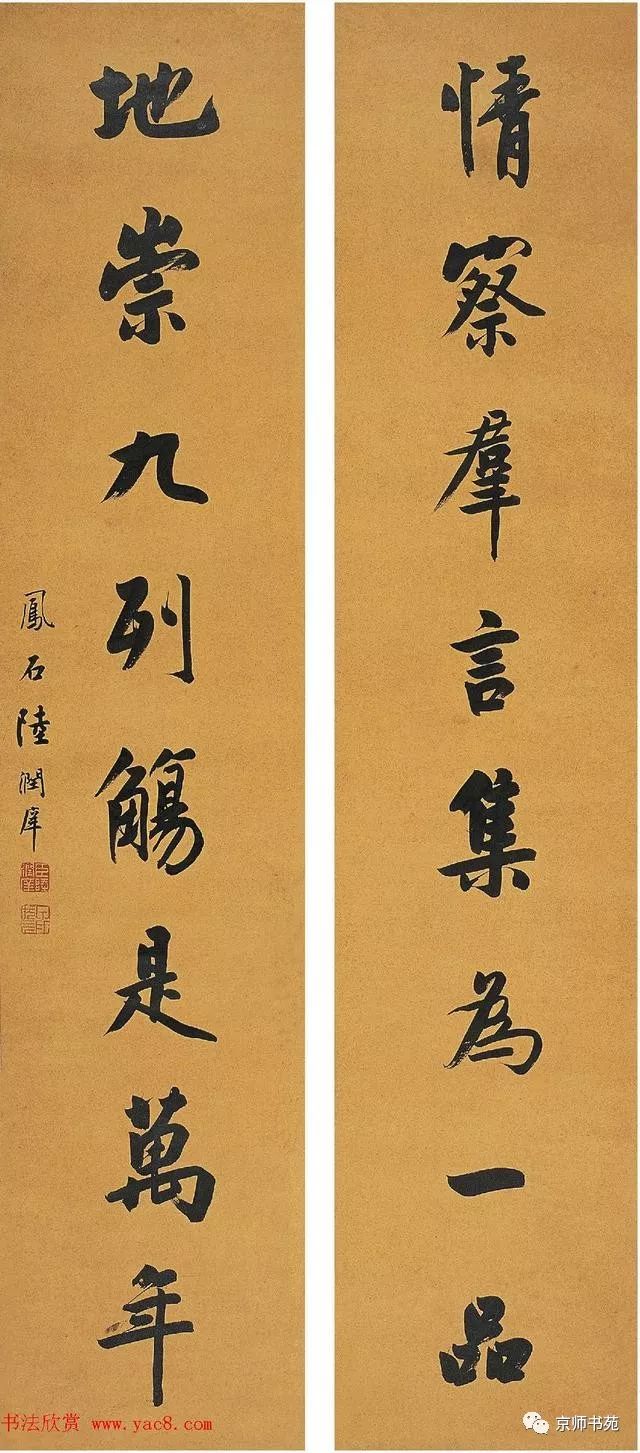 情察羣言集為一品
地崇九列觴是萬年
鳳石陸潤庠
书法欣赏 www.yac8.com
京师书苑